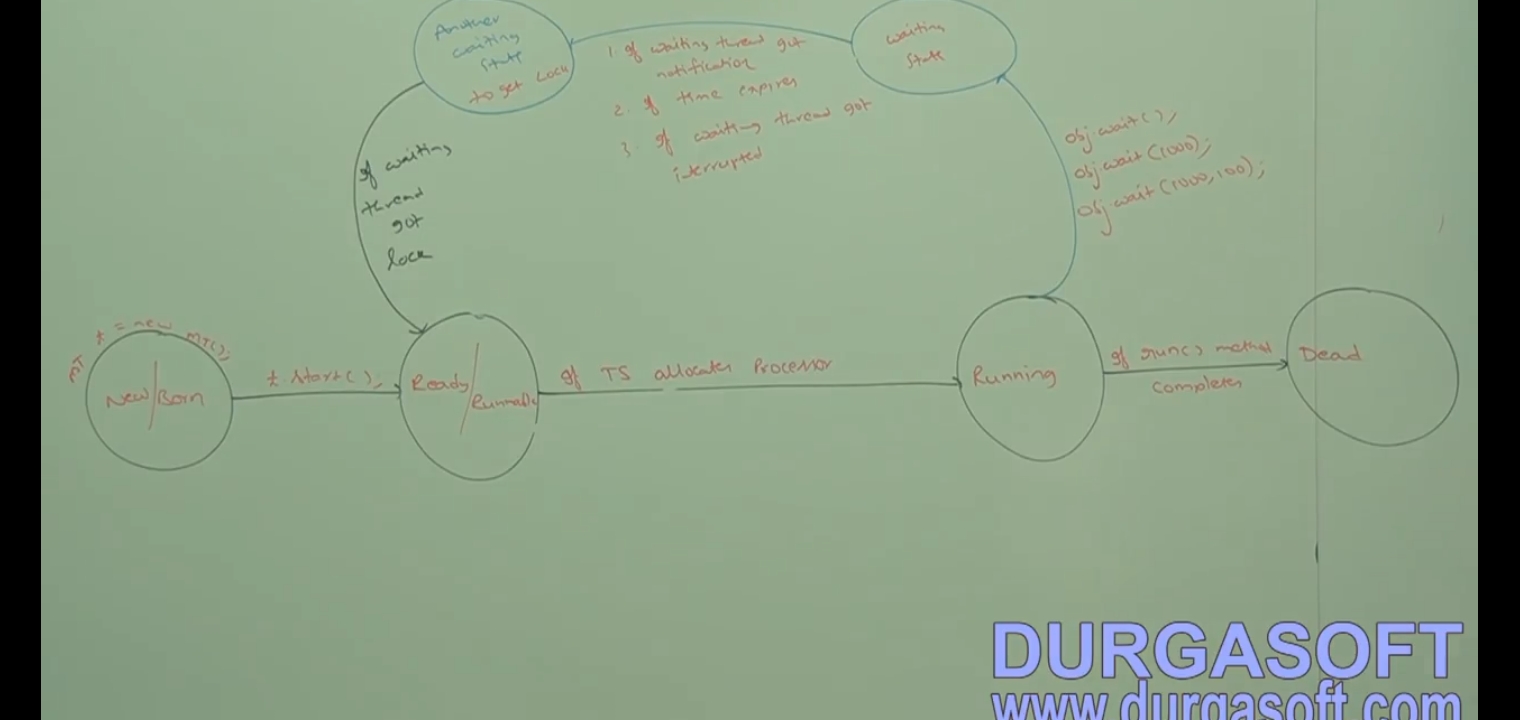 Another
waiting
state
to get Lock
1. If waiting thread got
notification
2. If time expires
3. If waiting thread got
iterrupted
waiting
state
obj.wait();
obj.wait(1000);
obj.wait(1000,100);
If waiting
thread
got
lock
MT t = new MT();
New/Born
t.start();
Ready/
Runnable
If TS allocates Processor
Running
If run() method
completes
Dead
DURGASOFT
www.durgasoft.com